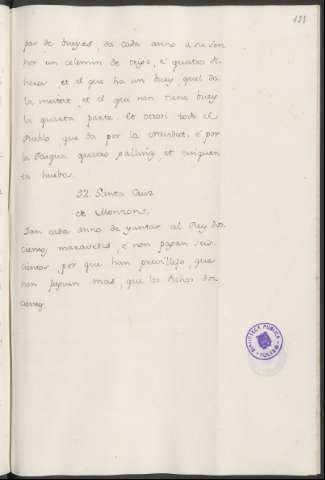 131
par de bueyes, da cada anno a su sen
hor un celemin de trigo, e quatro di
neros, et el que ha un buey, quel da
la meitat, et el que non tiene buey
la quarta parte. Et otrosi todo el
Pueblo que da por la Navidat, e por
la Pasqua quatro gallinas, et cinquen
ta huebos.
92. Santa Cruz
de Monzons.
Dan cada anno de yantar al Rey dos
cientos maravedis, e non pagan seis
cientos, por que han previllejo, que
non paguen mas, que los dichos dos
cientos.
BIBLIOTECA PÚBLICA
TOLEDO